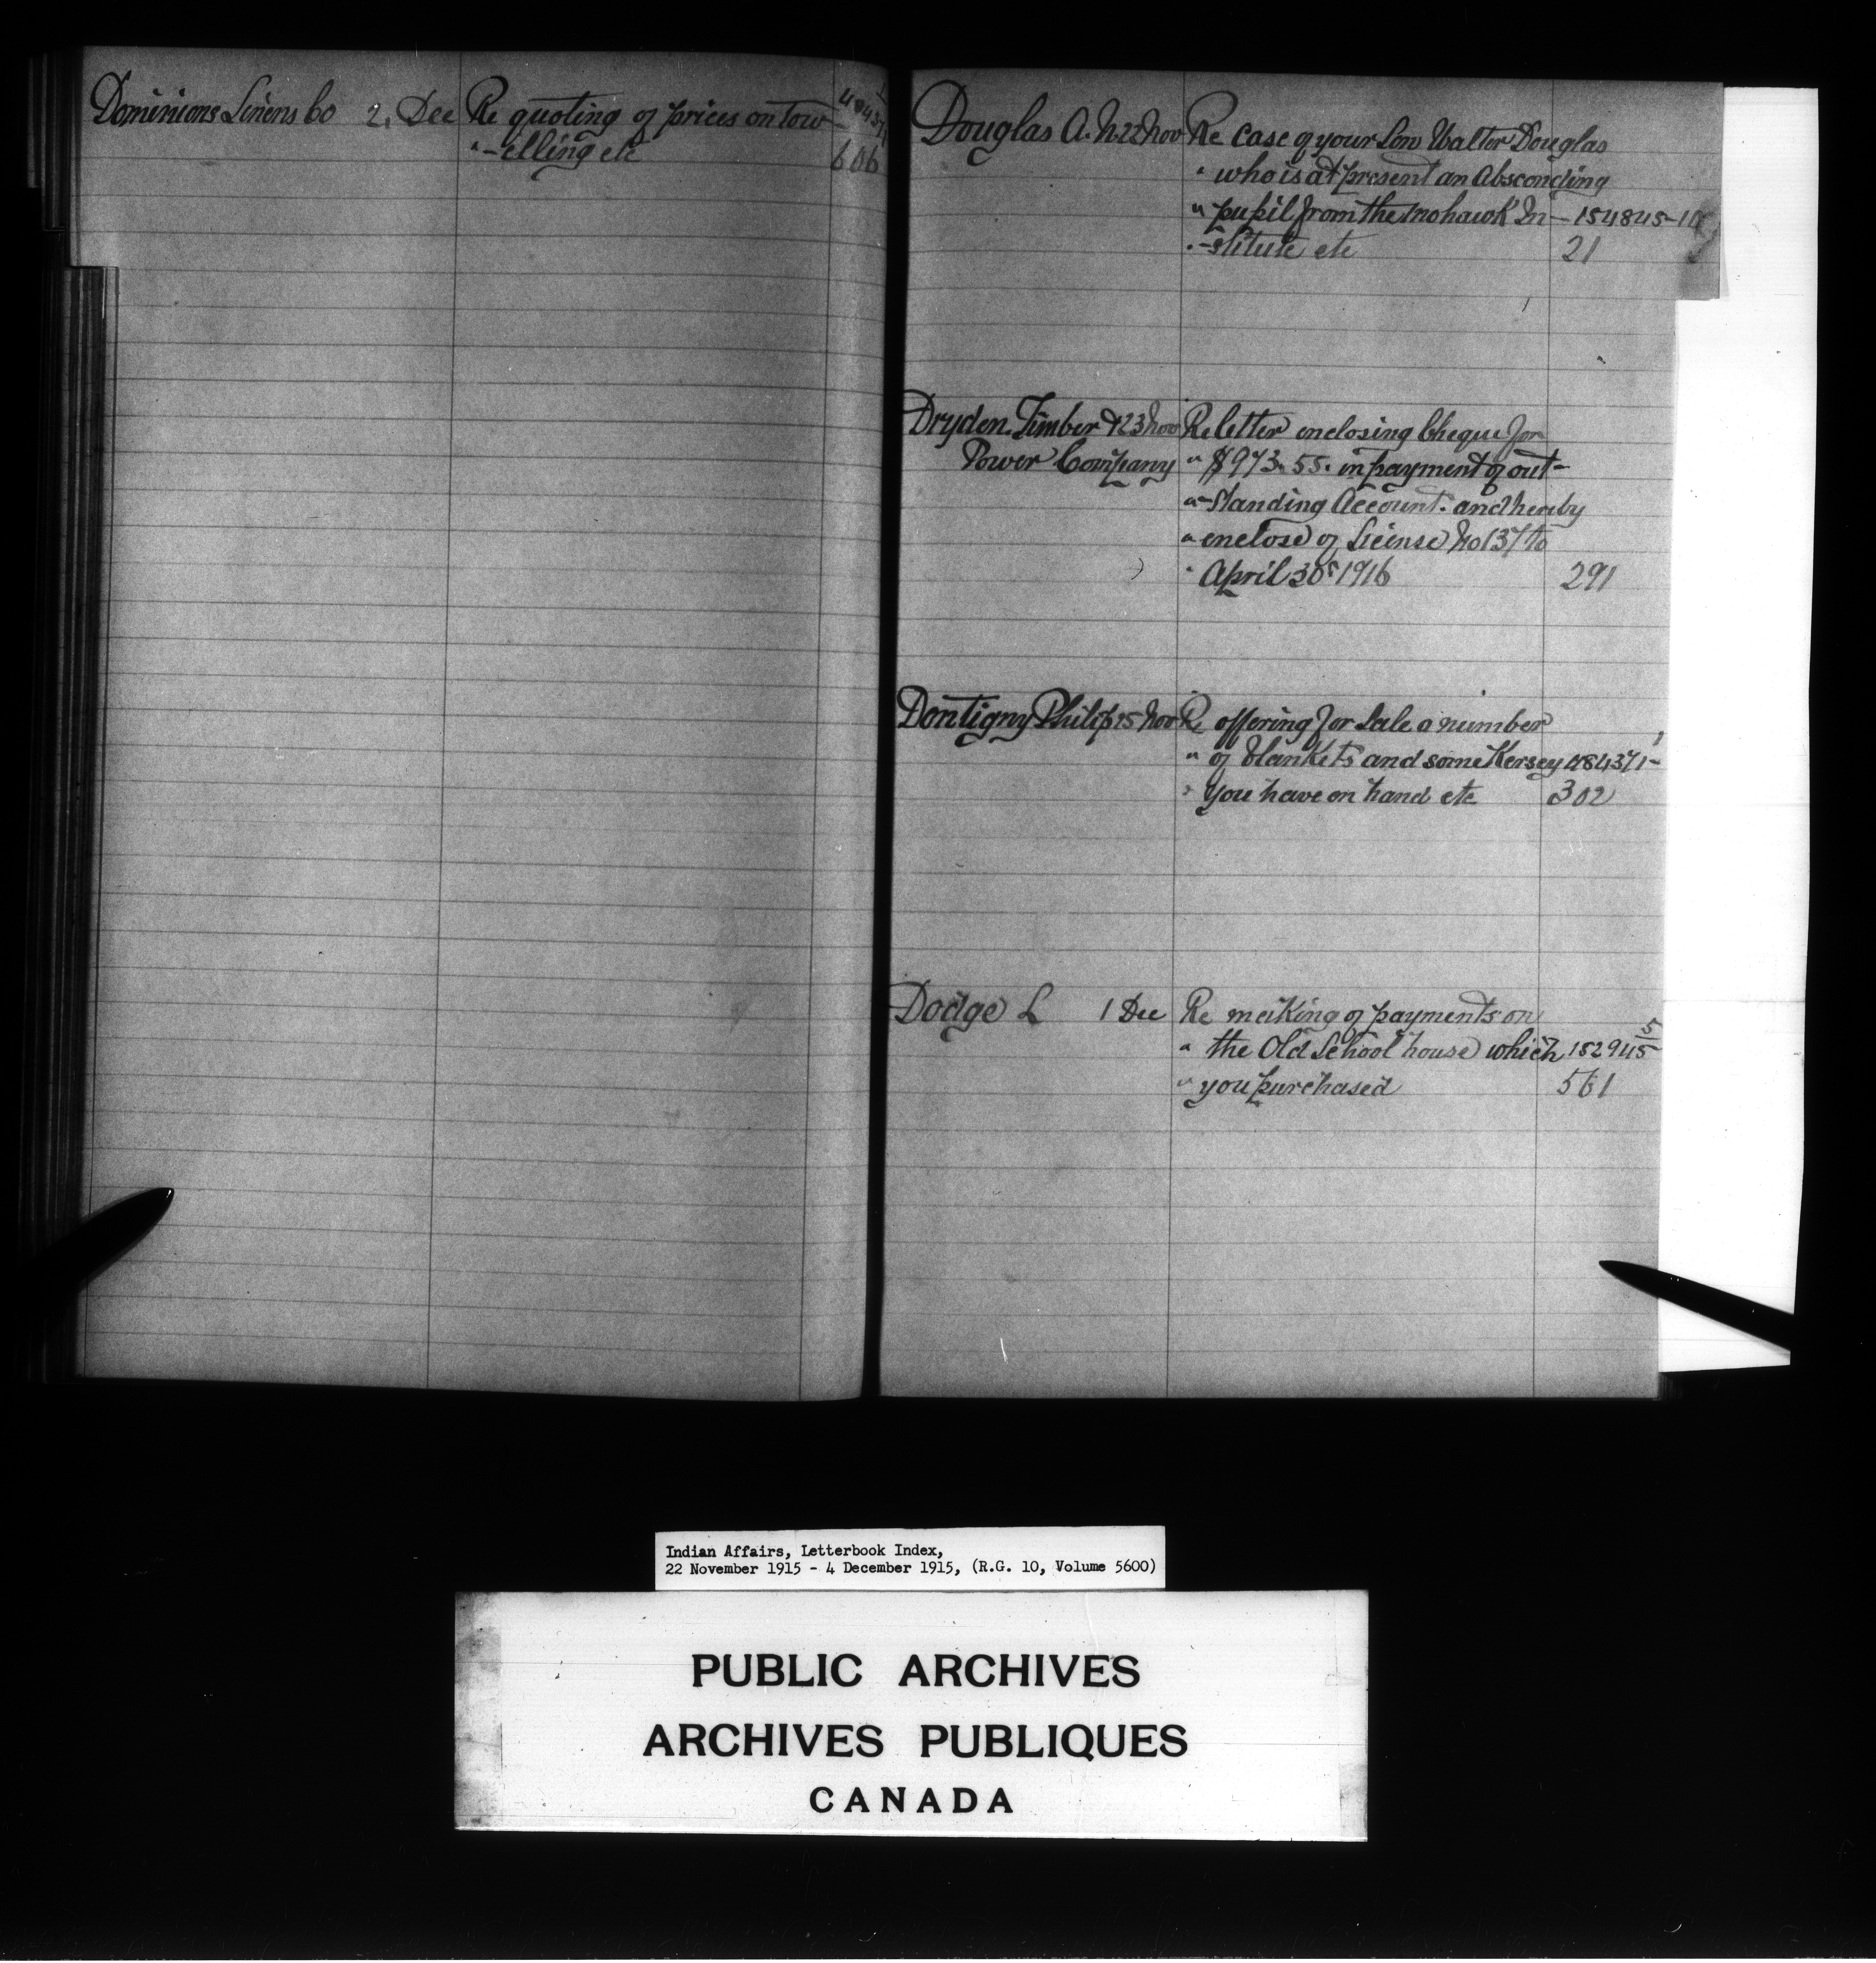 Dominions Linens Co 2, Dec Re quoting of prices on tow-
"-elling etc 606
Douglas A. N. 22 Nov Re case of your Son Walter Douglas
" who is at present an Absconding
" pupil from the Mohawk In- 154845-1
"-stitute etc 21
Dryden Timber & 23 Nov Re letter enclosing Cheque for
Power Company " $973.55. in payment of out-
"-standing Account. and hereby
" enclose of License No 137 to
" April 30th 1916 291
Dontigny Philip 25 Nov Re offering for Sale a number
" of blankets and some Kersey 484371-1
" you have on hand etc 302
Dodge L 1 Dec Re making of payments on
" the Old School house which 152945-5
" you purchased 561
Indian Affairs, Letterbook Index,
22 November 1915 - 4 December 1915, (R.G. 10, Volume 5600)
PUBLIC ARCHIVES
ARCHIVES PUBLIQUES
CANADA